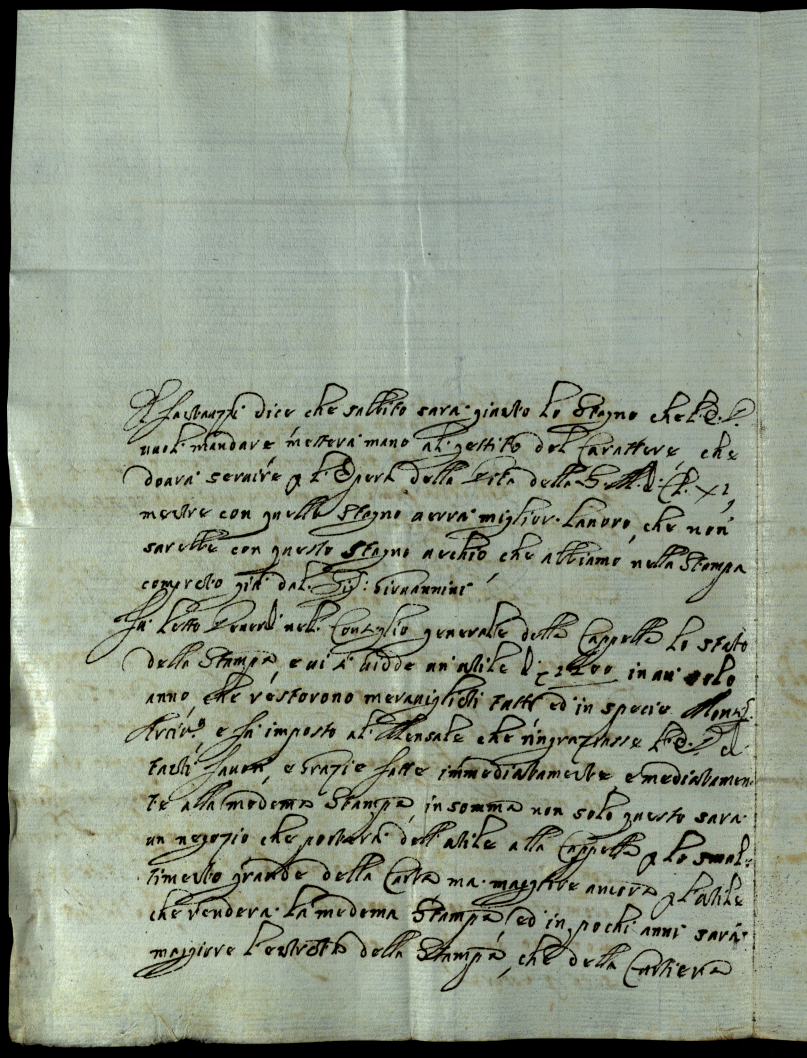 Il dice che subbito sarà giunto lo Stagno che l. E. S.
vuol mandare metterà mano al gettito del Carattere, che
dovrà servire p l'Opera della Vita della S. M. di Cl. XI,
mentre con quello Stagno averà miglior lavoro, che non
sarebbe con questo Stagno vechio che abbiamo nella Stampa
comprato già dal Sig: Giovannini
Fu letto Venerdì nel Consiglio generale della Cappella lo stato
della Stampa, e vi si vidde un utile di in un solo
anno, che restorono maravigliati tutti ed in specie Mons.
e fu imposto al Mensale che ringraziasse l. E. S. di
tanti favori, e grazie fatte immediatamente e mediatamen-
te alla medema Stampa, in somma non solo questo sarà
un negozio che porterà dell'utile alla Cappella p lo smal-
timento grande della Carta ma maggiore ancora p l'utile
che renderà la medema Stampa, ed in pochi anni sarà
maggiore l'entrata della Stampa, che della Cartiera